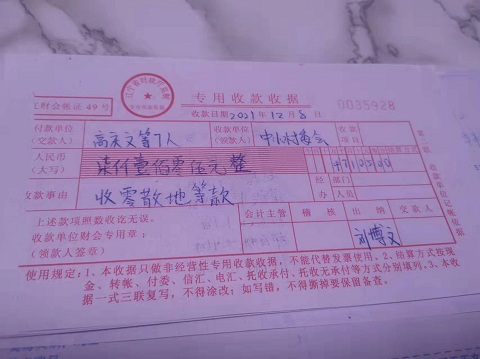 专用收款收据
财会账证49号
收款日期2021年12月8日
0035928
付款单位
(交款人)
高宋文等7人
收款单位
(领款人)
中小村委会
收款
项目
人民币
(大写)
柒仟壹佰零伍元整
收款事由
收零散地等款
经办
部门
人员
上述款项照数收讫无误。
收款单位财会专用章:
(领款人签章)
会计主管
稽核
出纳
交款人
刘博文
使用规定:1、本收据只做非经营性专用收款收据,不能代替发票使用。2、结算方式按现
金、转帐、付委、信汇、电汇、托收承付、托收无承付等方式分别填列。3、本收
据一式三联复写,不得涂改;如写错,不得撕掉要保留备查。